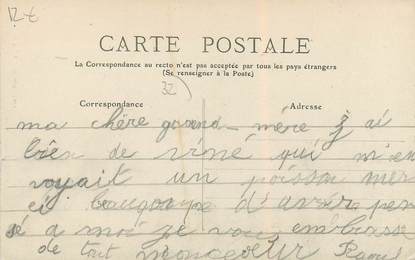 12 €
CARTE POSTALE
La Correspondance au recto n'est pas acceptée par tous les pays étrangers
(Se renseigner à la Poste)
32
Correspondance Adresse
ma chère grand-mère j ai
bien de viné qui m'en
voyait un poisson mer
ci beaucoup d'avoir pen
sé a moi je vous embrasse
de tout moncoeur Raoul